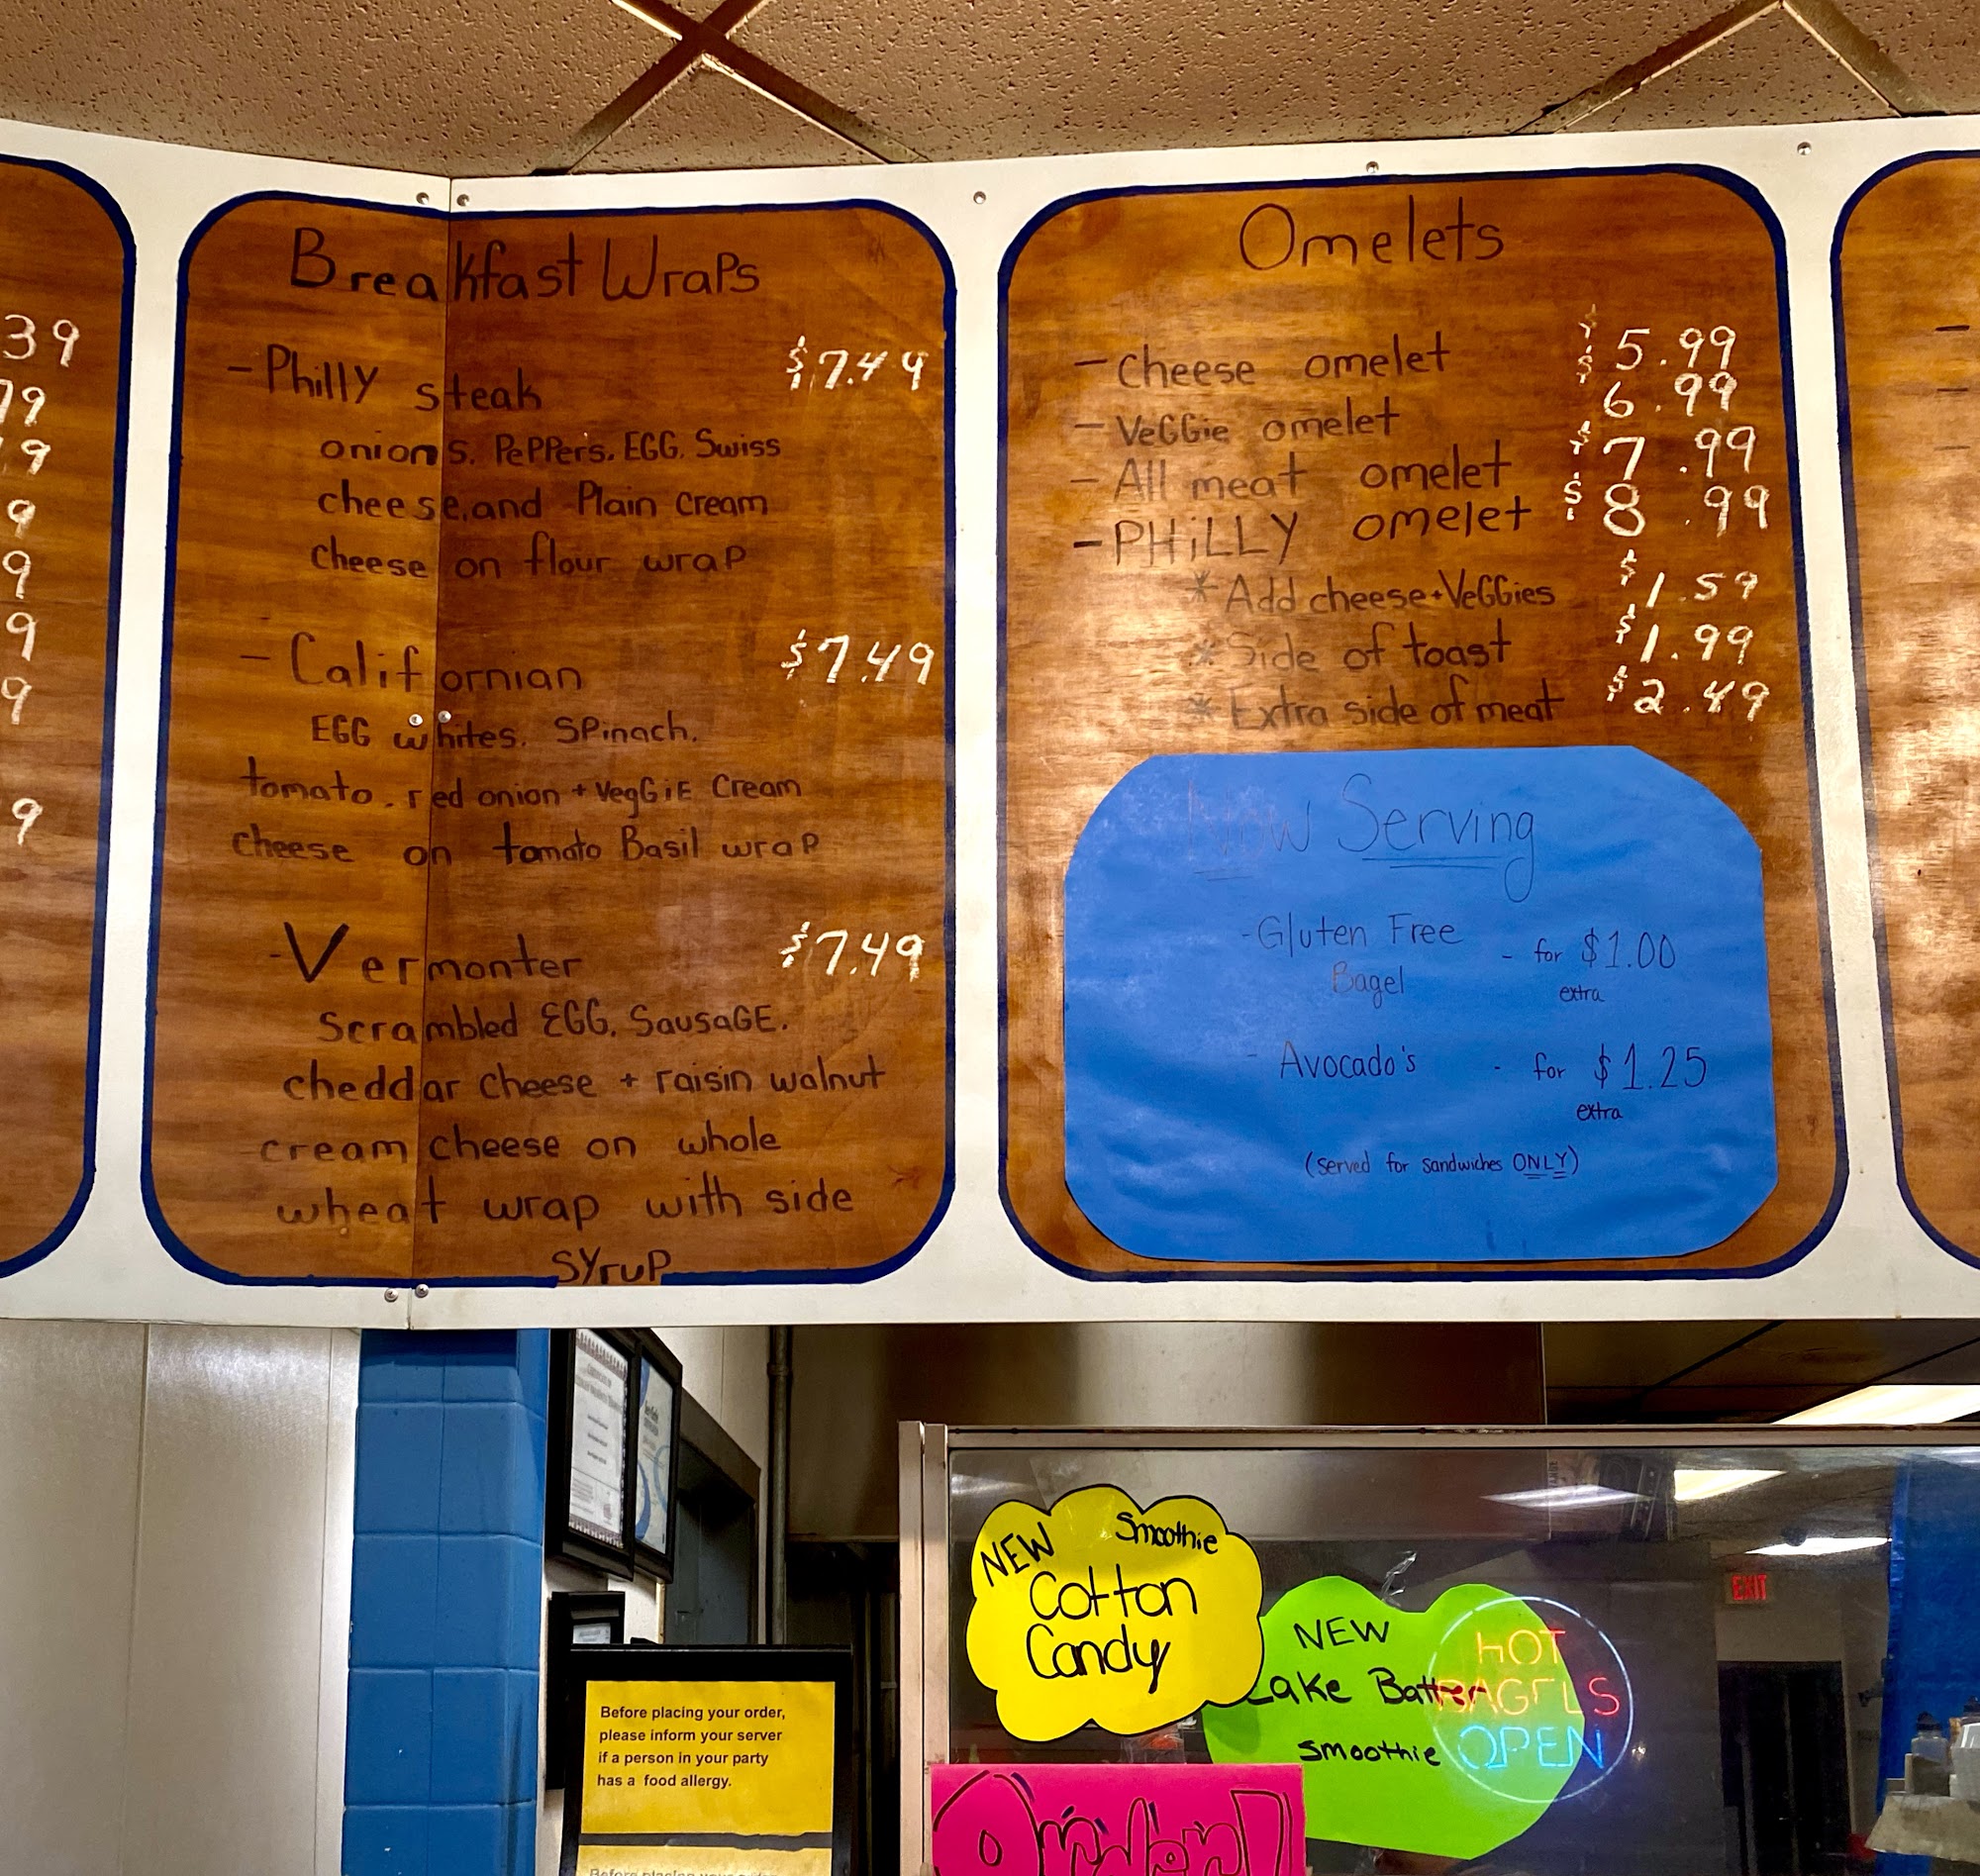 39
79
9
9
9
9
9
9
Breakfast Wraps
- Philly steak $7.49
onions, Peppers, EGG, Swiss
cheese, and Plain cream
cheese on flour wrap
- Californian $7.49
EGG whites, Spinach,
tomato, red onion + VegGiE Cream
cheese on tomato Basil wrap
- Vermonter $7.49
Scrambled EGG, SausaGE,
cheddar cheese + raisin walnut
cream cheese on whole
wheat wrap with side
SYruP
Omelets
- Cheese omelet $5.99
- VeGGie omelet $6.99
- All meat omelet $7.99
- PHiLLY omelet $8.99
* Add cheese + VeGGies $1.59
* Side of toast $1.99
* Extra side of meat $2.49
Now Serving
- Gluten Free - for $1.00
Bagel extra
- Avocado's - for $1.25
extra
(served for sandwiches ONLY)
NEW Smoothie
Cotton
Candy
NEW
Cake Batter
smoothie
HOT
BAGELS
OPEN
EXIT
Before placing your order,
please inform your server
if a person in your party
has a food allergy.
Order